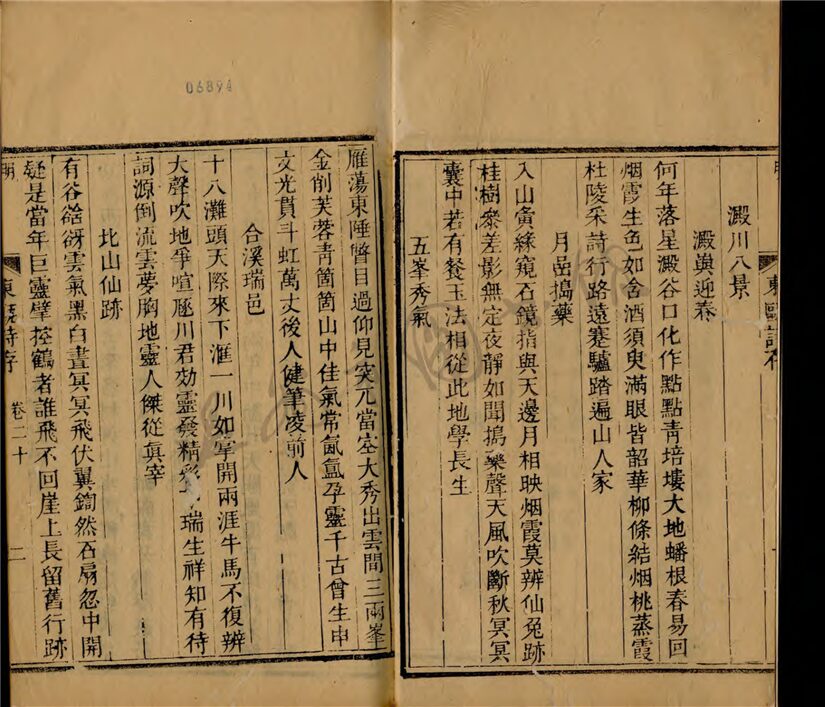 澱川八景
澱輿迎春
何年落星澱谷口化作點點青培塿大地蟠根春易回
烟霞生色如含酒須臾滿眼皆韶華柳條結烟桃蒸霞
杜陵采詩行路遠蹇驢踏遍山人家
月嵒搗藥
入山夤緣窺石鏡指與天邊月相映烟霞莫辨仙兔跡
桂樹叅差影無定夜靜如聞搗藥聲天風吹斷秋冥冥
囊中若有餐玉法相從此地學長生
五峯秀氣
東甌詩存
06894
雁蕩東陲瞥目過仰見突兀當空大秀出雲間三兩峯
金削芙蓉靑箇箇山中佳氣常氤氳孕靈千古曾生申
文光貫斗虹萬丈後人健筆凌前人
合溪瑞邑
十八灘頭天際來下滙一川如掌開兩涯牛馬不復辨
大聲吹地爭喧豗川君効靈發精彩瑞生祥知有待
詞源倒流雲夢胸地靈人傑從眞宰
北山仙跡
有谷谽谺雲氣黑白晝冥冥飛伏翼鍧然石扇忽中開
疑是當年巨靈擘控鶴者誰飛不回崖上長留舊行跡
明
東甌詩存
卷二十
二